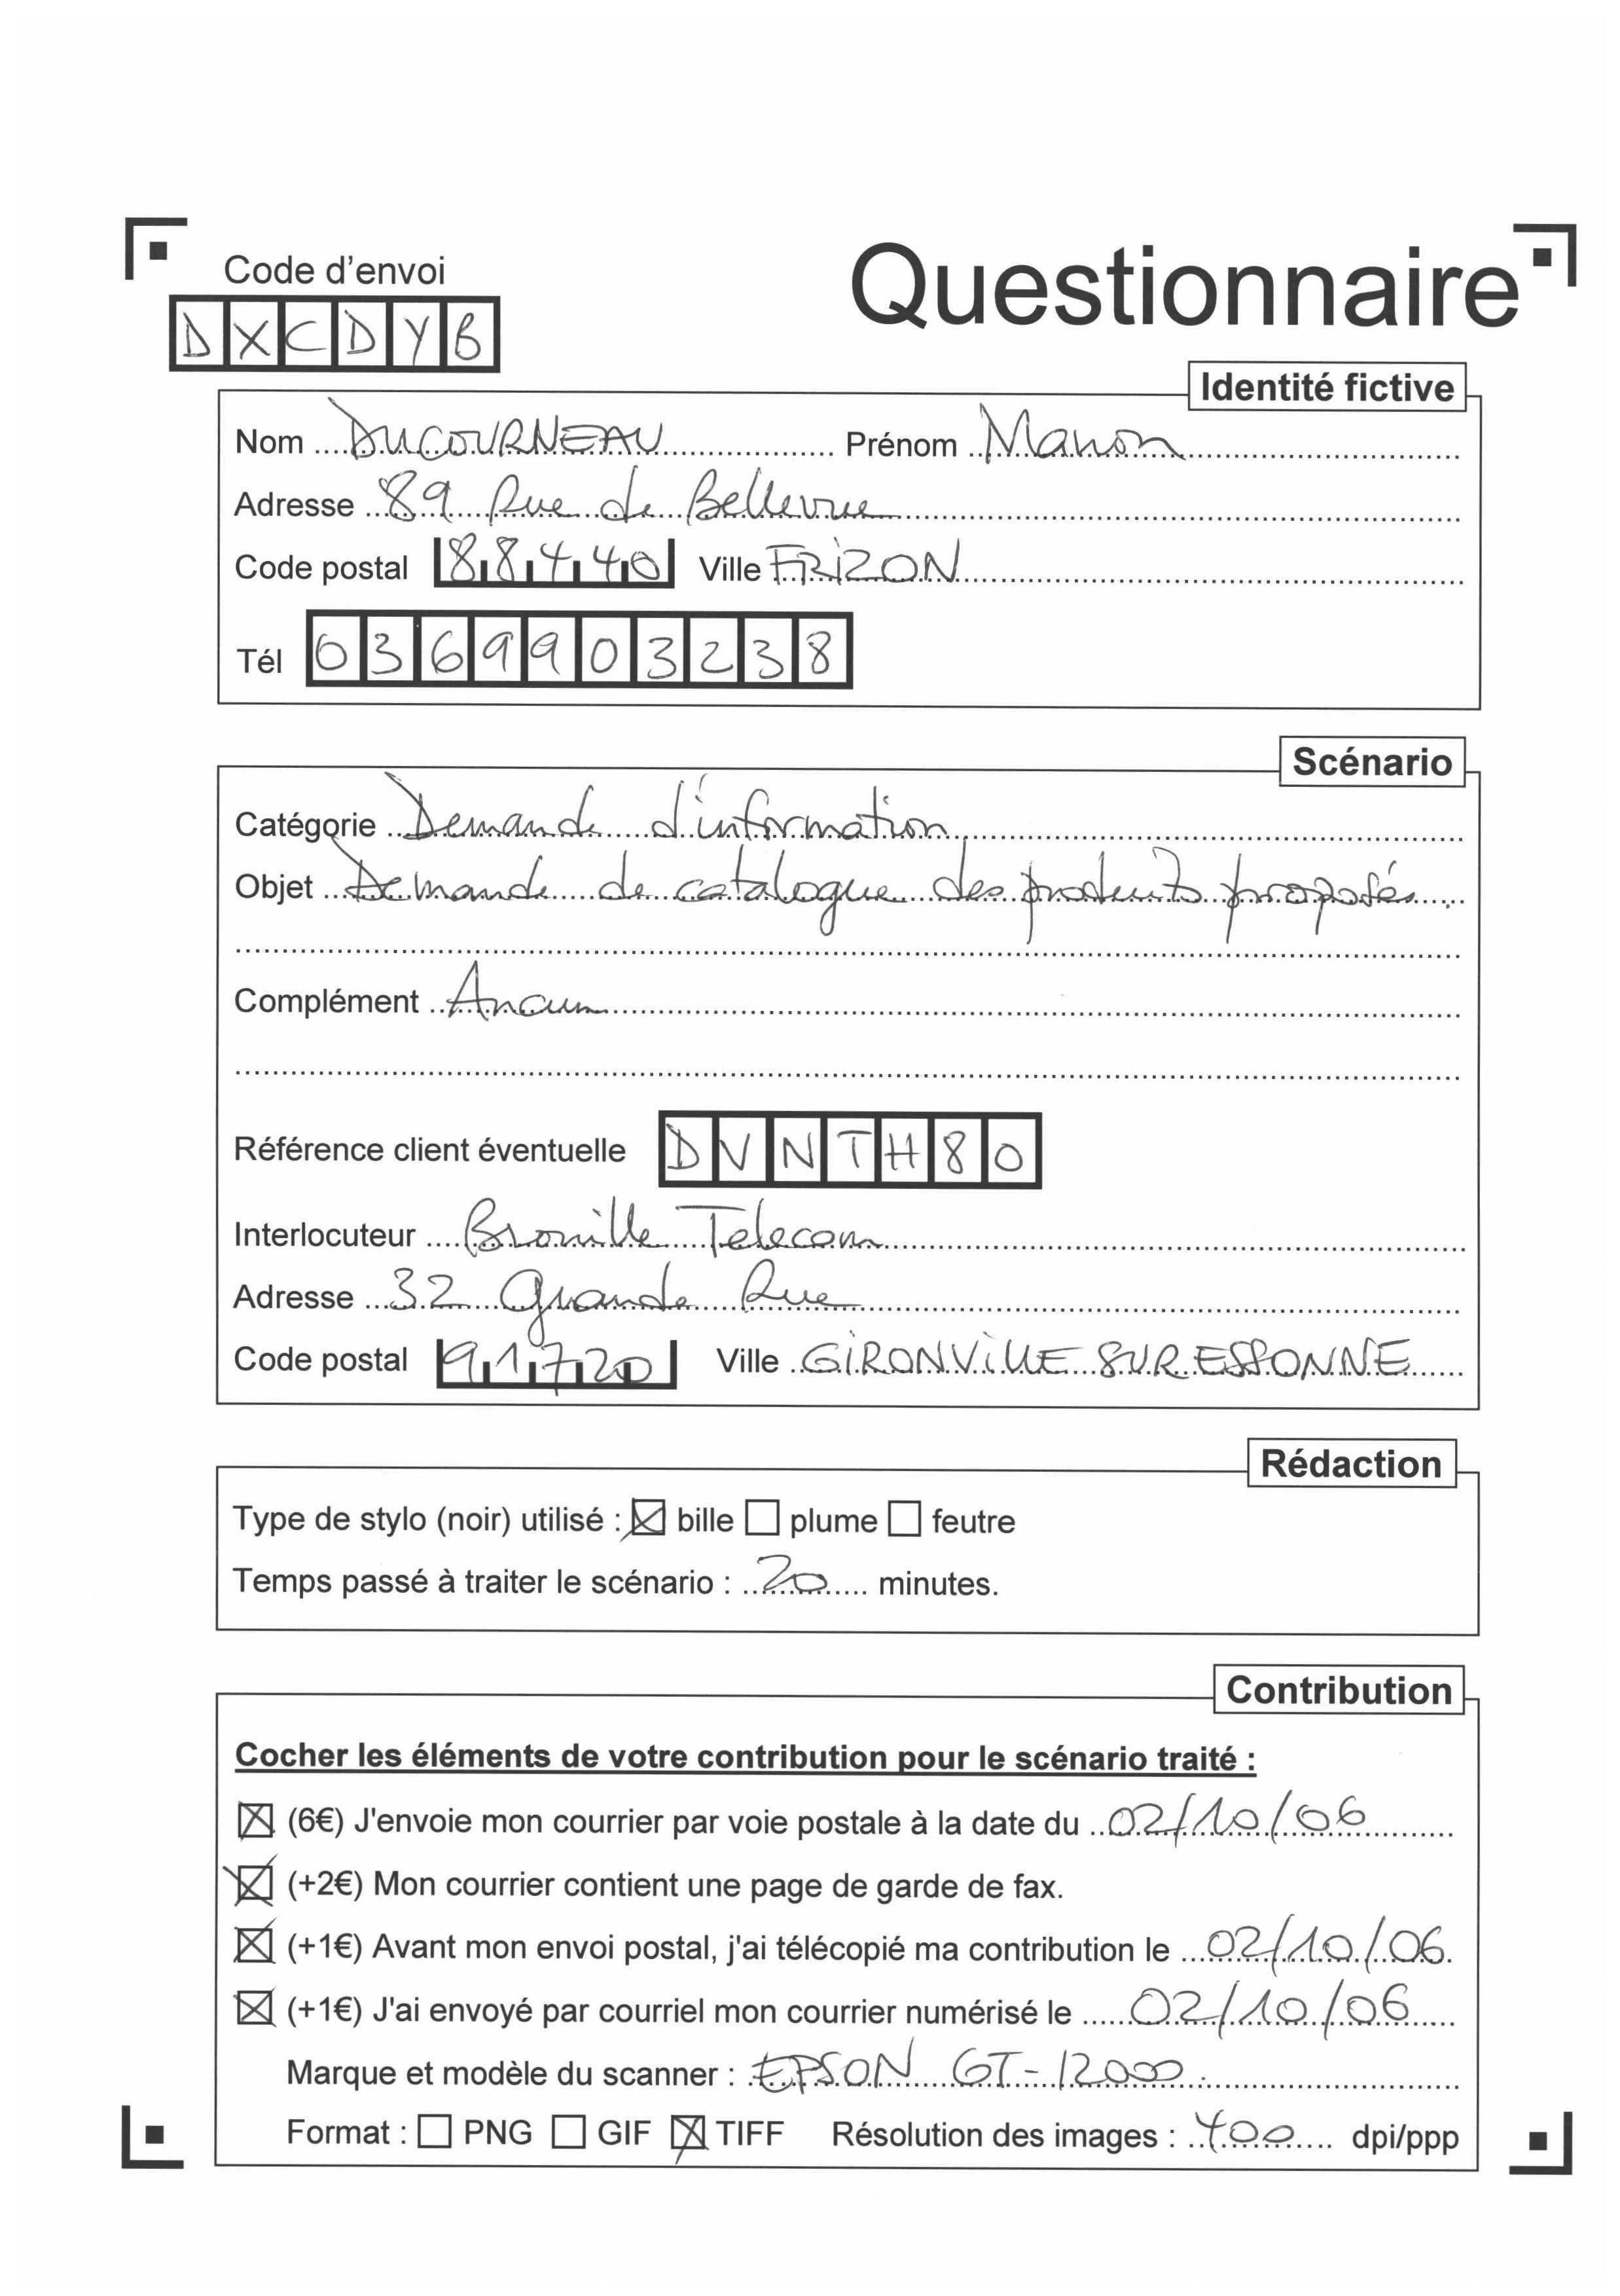 Code d'envoi
Questionnaire
DXCDYB
Identité fictive
Nom DUCOURNEAU Prénom Manon
Adresse 89 Rue de Bellevue
Code postal 88440 Ville FRIZON
Tél 0369903238
Scénario
Catégorie Demande d'information
Objet Demande de catalogue des produits proposés.
Complément Aucun
Référence client éventuelle DVNTH80
Interlocuteur Brouille Telecom
Adresse 32 Grande Rue
Code postal 91720 Ville GIRONVILLE SUR ESSONNE
Rédaction
Type de stylo (noir) utilisé : ☒ bille ☐ plume ☐ feutre
Temps passé à traiter le scénario : 20 minutes.
Contribution
Cocher les éléments de votre contribution pour le scénario traité :
☒ (6€) J'envoie mon courrier par voie postale à la date du 02/10/06
☒ (+2€) Mon courrier contient une page de garde de fax.
☒ (+1€) Avant mon envoi postal, j'ai télécopié ma contribution le 02/10/06
☒ (+1€) J'ai envoyé par courriel mon courrier numérisé le 02/10/06
Marque et modèle du scanner : EPSON GT-12000
Format : ☐ PNG ☐ GIF ☒ TIFF Résolution des images : 400 dpi/ppp